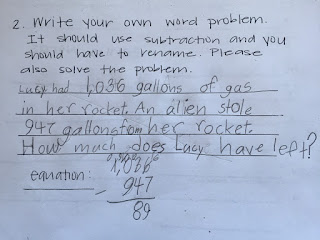 2. Write your own word problem.
It should use subtraction and you
should have to rename. Please
also solve the problem.
Lucy had 1,036 gallons of gas
in her rocket. An alien stole
947 gallons from her rocket.
How much does Lucy have left?
equation: 1,036
- 947
89